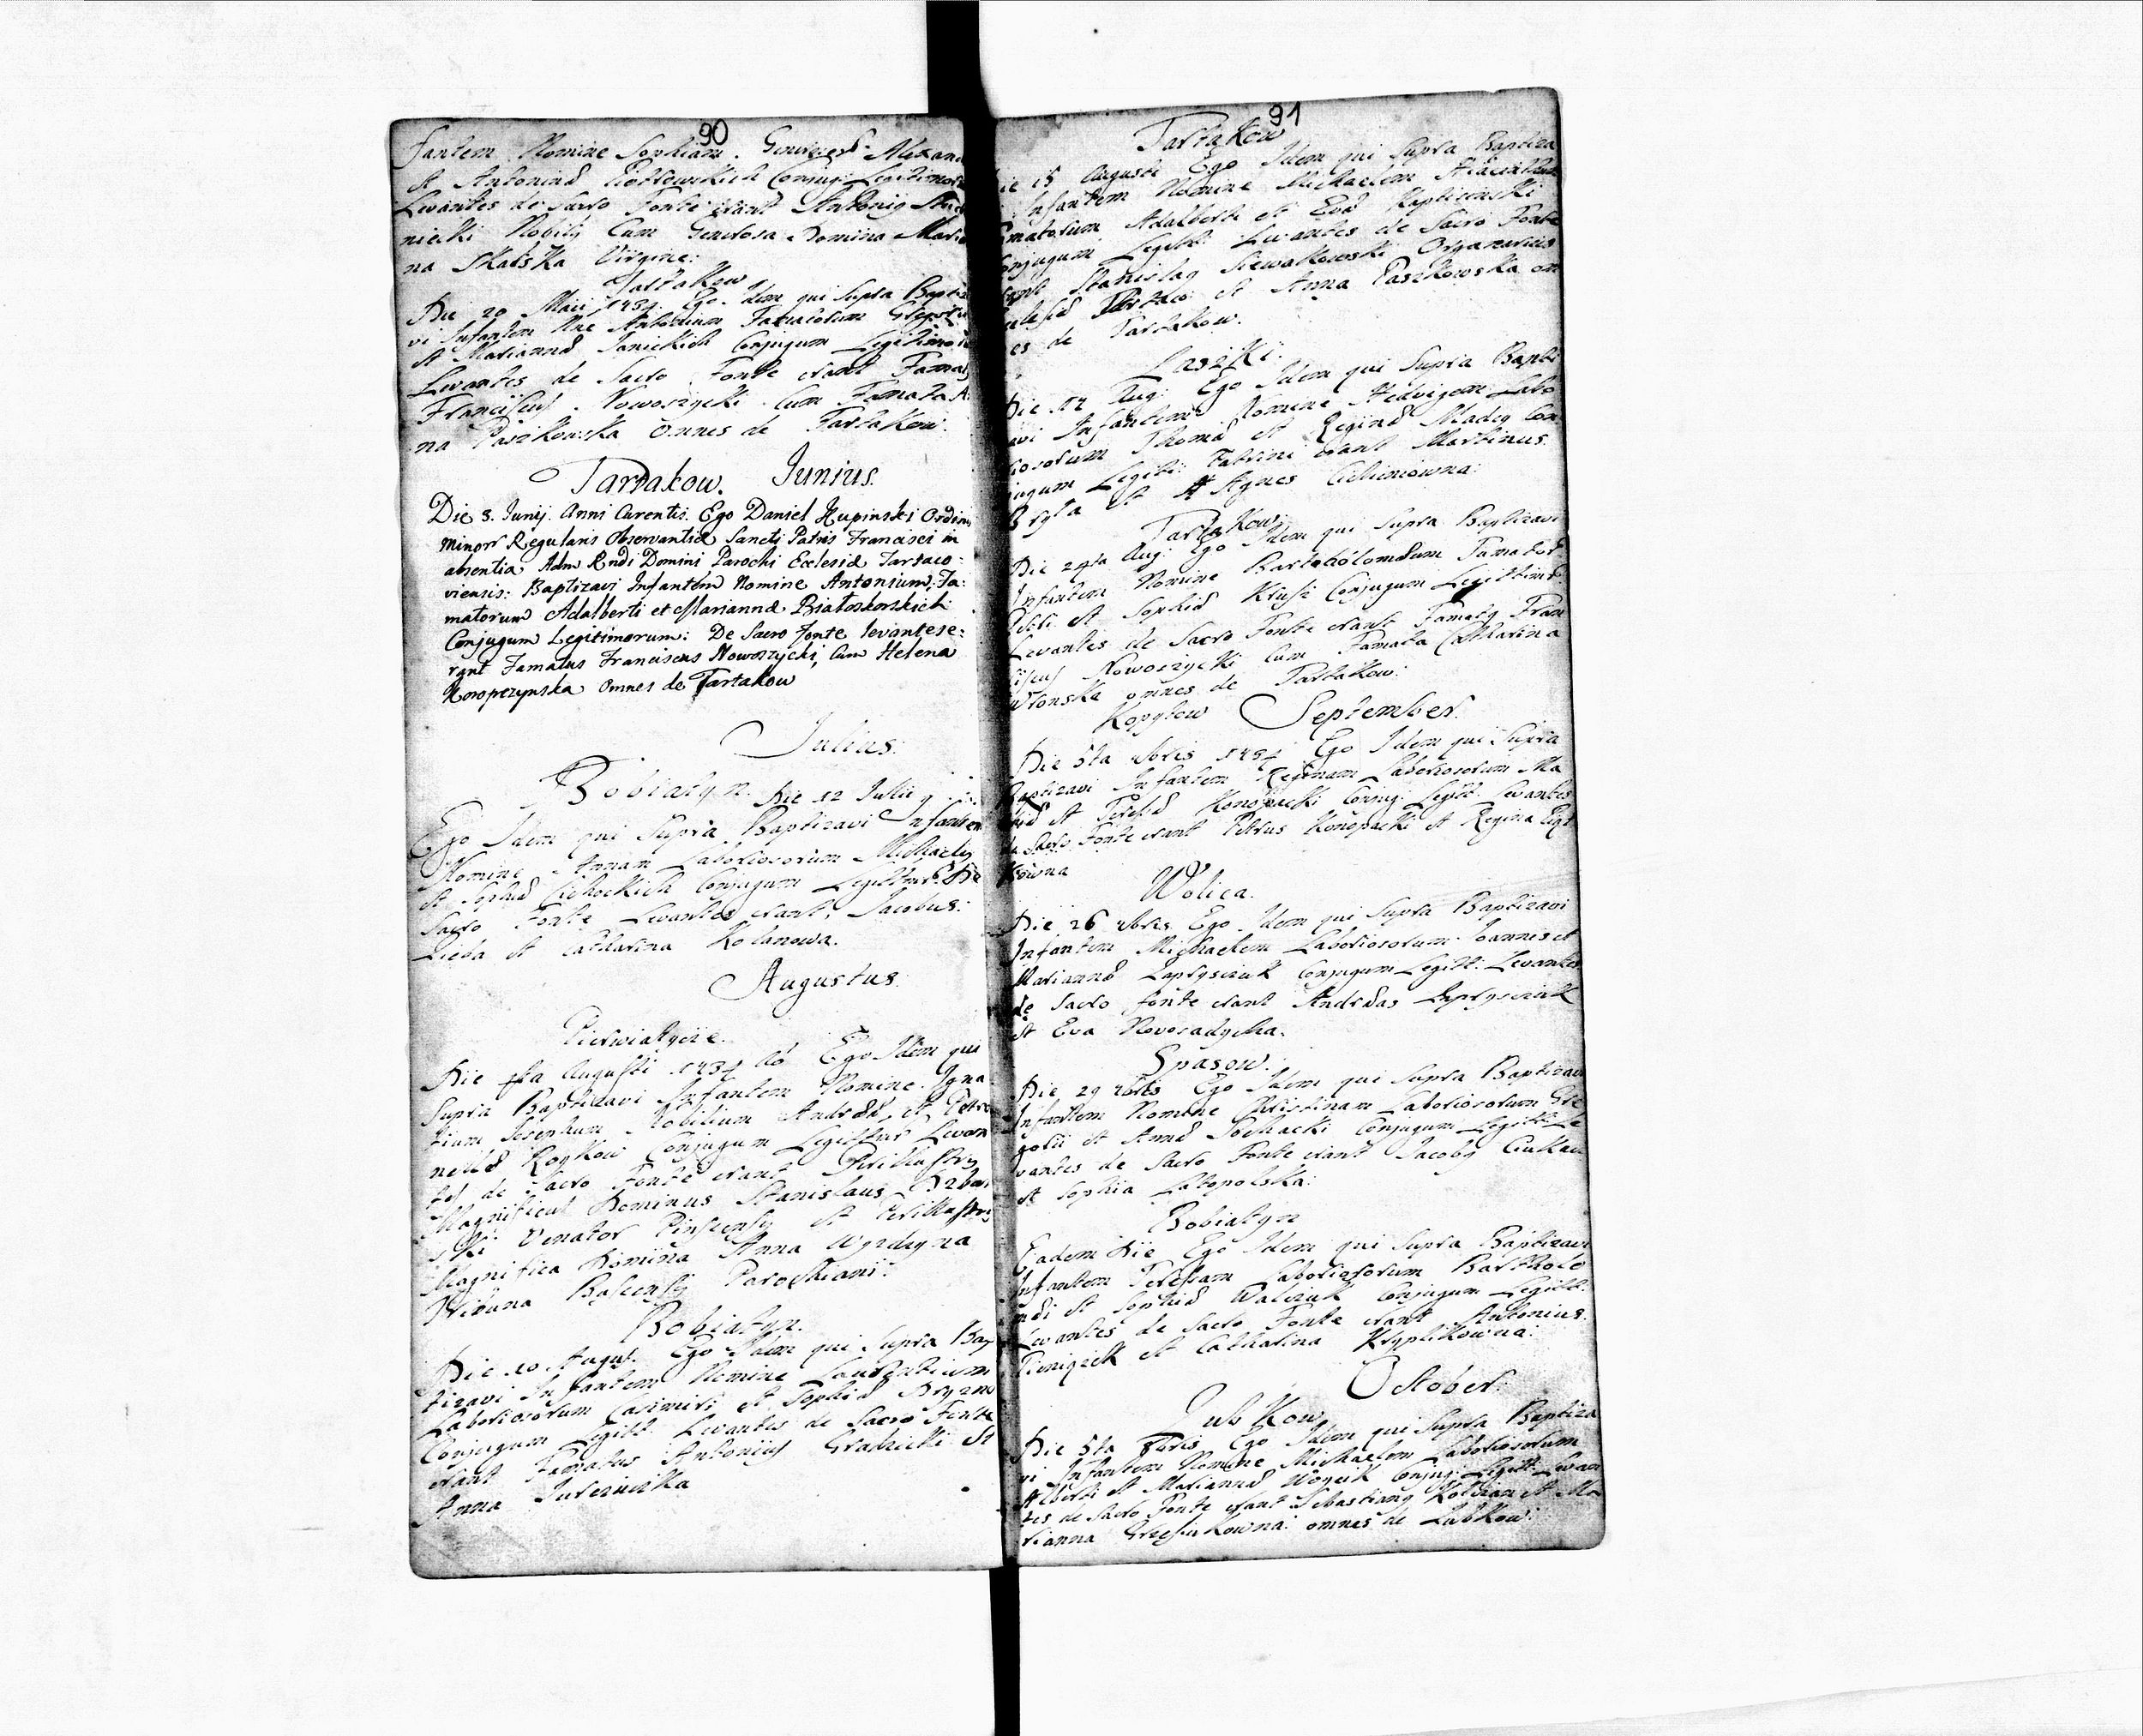 90
fantem Nomine Sophiam. Generos: Alexan
et Antoninæ Conjug: Legitimor
Levantes de Sacro fonte erant Antonig
nicki Nobilis Cum Generosa Domina Maria
na Skarska Virgine:
Tartakow
Die 20 Maii Ego Idem qui Supra Baptiza
vi Infantem Nne Antonium Famatorum Gregorii
et Mariannæ Janickich Conjugum Legitimor
Levantes de Sacro Fonte erant Famat9
Franciscus Nowoszycki Cum Famata A
na Paszkowska omnes de Tartakow.
Tartakow. Junius.
Die 3. Junij. Anni Curentis. Ego Daniel Kupinski Ordinis
Minorr Regularis Observantiæ Sancti Patris Francisci in
absentia Adm Rndi Domini Parochi Ecclesiæ Tartaco-
viensis: Baptizavi Infantem Nomine Antonium, Fa:
matorum Adalberti et Mariannæ Białoskorskich
Conjugum Legitimorum: De Sacro fonte levantes e:
rant Famatus Franciscus Nowoszycki, Cum Helena
Konopczynska Omnes de Tartakow
Julius.
Bobiatyn. Die 12 Julii
Ego Idem qui Supra Baptizavi Infantem
Nomine Annam Laboriosorum Michaelis
et Sophiæ Cichockich Conjugum Legittimor: De
Sacro Fonte Levantes erant, Jacobus:
Zieba et Catharina Kolanowa.
Augustus.
Pierwiatycze.
Die Augusti Ego Idem qui
Supra Baptizavi Infantem Nomine Igna
tium Josephum Nobilium Andreæ et Petro
nellæ Roykow Conjugum Legittimor Levan
tes de Sacro Fonte erant Perillustris
Magnificus Dominus Stanislaus
ski Venator Pinscensis et Perillustris
Magnifica Domina Anna Wyrdzyna
Tribuna Parochiani:
Bobiatyn.
Die 10 August. Ego Idem qui Supra Bap
tizavi Infantem Nomine Laurentium
Laboriosorum Casimiri et Sophiæ
Conjugum Legitt. Levantes de Sacro Fonte
erant Famatus Antonius et
Anna
91
Tartakow
Die 15 Augusti Ego Idem qui Supra Baptiza
Infantem Nomine Michaelem
Famatorum Adalberti et Evæ Kapticinski
Conjugum Legitt: Levantes de Sacro Fonte
erant Stanislaq Siewakowski Organarius
Eclesiæ Tartaco: et Anna Paszkowska om
es de Tartakow.
Laszki:
Die 17 Aug: Ego Idem qui Supra Bapti
avi Infantem Nomine Hedvigem Labo
iosorum Thomæ et Reginæ Madey Con
jugum Legitt: Patrini erant Martinus
Bryła et Agnes Cichoniowna:
Tartakow
Die 24ta Aug: Ego Idem qui Supra Baptizavi
Infantem Nomine Bartholomæum Famator
Petri et Sophiæ Conjugum Legittimor
Levantes de Sacro Fonte erant Famatq Fran
ciscus Nowoszycki Cum Famata Catharina
Wronska omnes de Tartakow.
Kopytow September.
Die 5ta 7bris Ego Idem qui Supra
Baptizavi Infantem Reginam Laboriosorum Ma
et Teresiæ Konopacki Coniug: Legitt: Levantes
de Sacro Fonte erant Petrus Konopacki et Regina
kowna
Wolica.
Die 26 7bris. Ego Idem qui Supra Baptizavi
Infantem Michaelem Laboriosorum Joannis et
Mariannæ Zaprysciuk Conjugum Legitt: Levantes
de Sacro fonte erant Andreas Zaprysciuk
et Eva Novosadycha.
Spasow.
Die 29 7bris Ego Idem qui Supra Baptizavi
Infantem Nomine Christinam Laboriosorum Gre
gorii et Annæ Sochacki Conjugum Legitt: Le
vantes de Sacro Fonte erant Jacobq
et Sophia
Bobiatyn
Eadem Die Ego Idem qui Supra Baptizavi
Infantem Teresiam Laboriosorum Bartholo
mæi et Sophiæ Walczuk Conjugum Legitt:
Levantes de Sacro Fonte erant Antonius
Pieniązek et Catharina
October.
Lubkow
Die 5ta 8bris Ego Idem qui Supra Baptiza
vi Infantem Nomine Michaelem Laboriosorum
Alberti et Mariannæ Woycik Coniug: Legitt: Levan
tes de Sacro Fonte erant Sebastianq et Ma
rianna omnes de Lubkow.